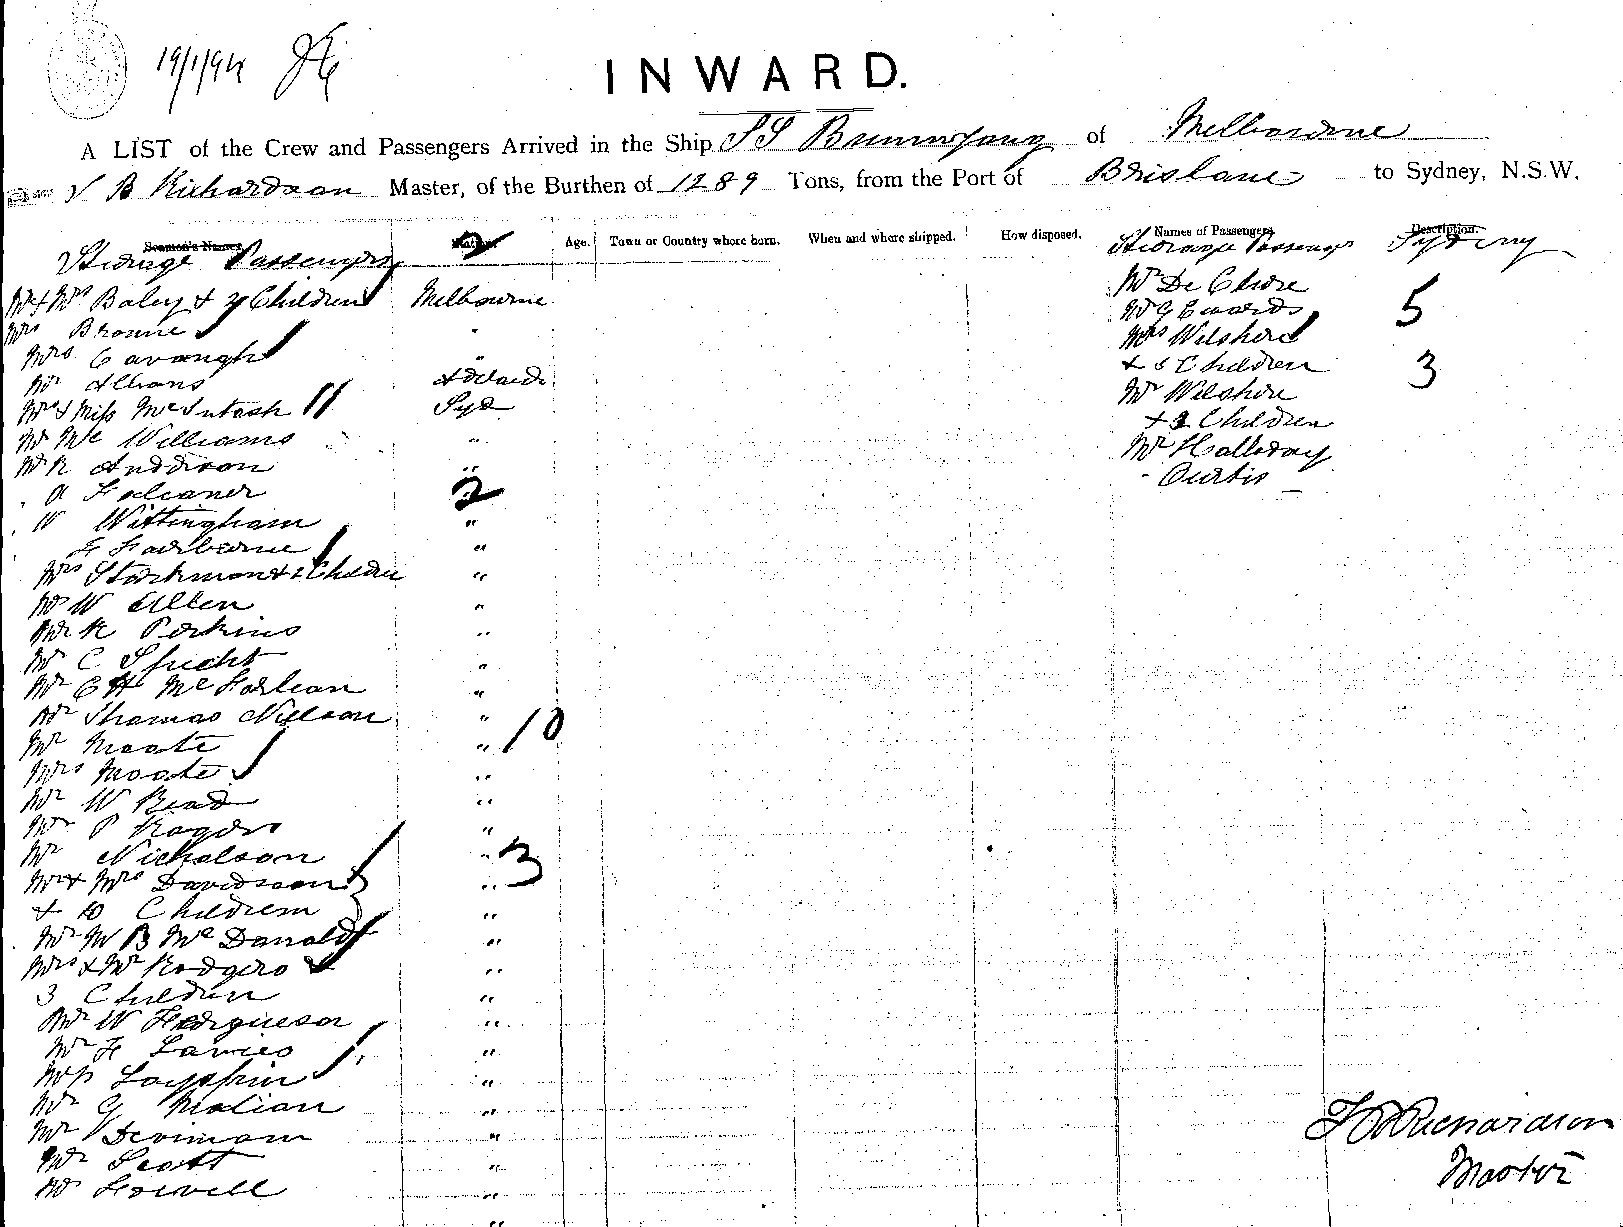 19/1/94
INWARD.
A LIST of the Crew and Passengers Arrived in the Ship SS Bunninyong of Melbourne
Richardson Master, of the Burthen of 1289 Tons, from the Port of Brisbane to Sydney, N.S.W.
Seamen's Names. Age. Town or Country where born. When and where shipped. How disposed. Names of Passengers. Description.
Steerage Passengers 2
Mr & Mrs Baley & 4 Children Melbourne
Mrs Browne "
Mrs Cavanagh "
Mr Adelaide
Mrs & Miss McIntosh Syd
Mr Mc Williams "
Mr R Anderson "
" A Falconer 2
" W Wittingham "
F Fairburne "
Mrs & 2 Children "
Mr W Allen "
Mr R Perkins "
Mr C Specht "
Mr C H McFarlean "
Mr Thomas Neilson "
Mr Moate " 10
Mrs Moate "
Mr W Read "
Mr P Rogers "
Mr Nicholson " 3
Mr & Mrs Davidson "
& 10 Children "
Mr W B McDonald "
Mrs & Mr Rodgers "
3 Children "
Mr W Ferguesor "
Mr F "
"
Mr G "
Mr "
Mr Scott "
Mr "
"
Steerage Passengers Sydney
Mr De
Mr G Ewards 5
Mrs Wilshire
& 5 Children 3
Mr Wilshire
& 2 Children
Mr Halloday
- Curtis
Richardson
Master